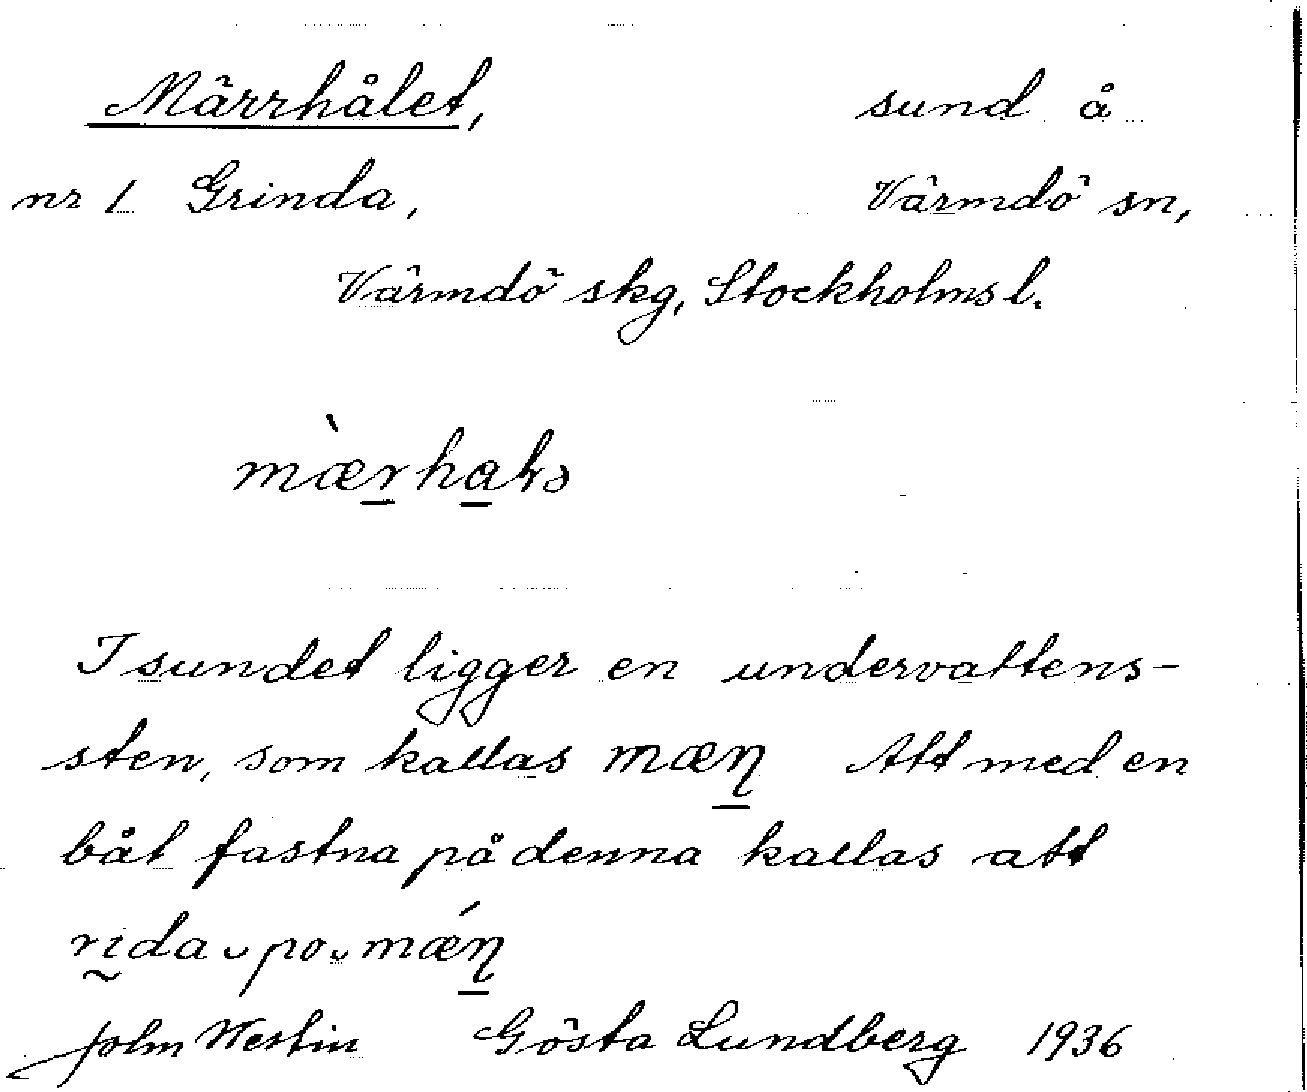 Märrhålet, sund å
nr 1 Grinda, Värmdö sn,
Värmdö skg, Stockholms l.
I sundet ligger en undervattens-
sten, som kallas mæɳ Att med en
båt fastna på denna kallas att
rida po mǽɳ
John Westin Gösta Lundberg 1936